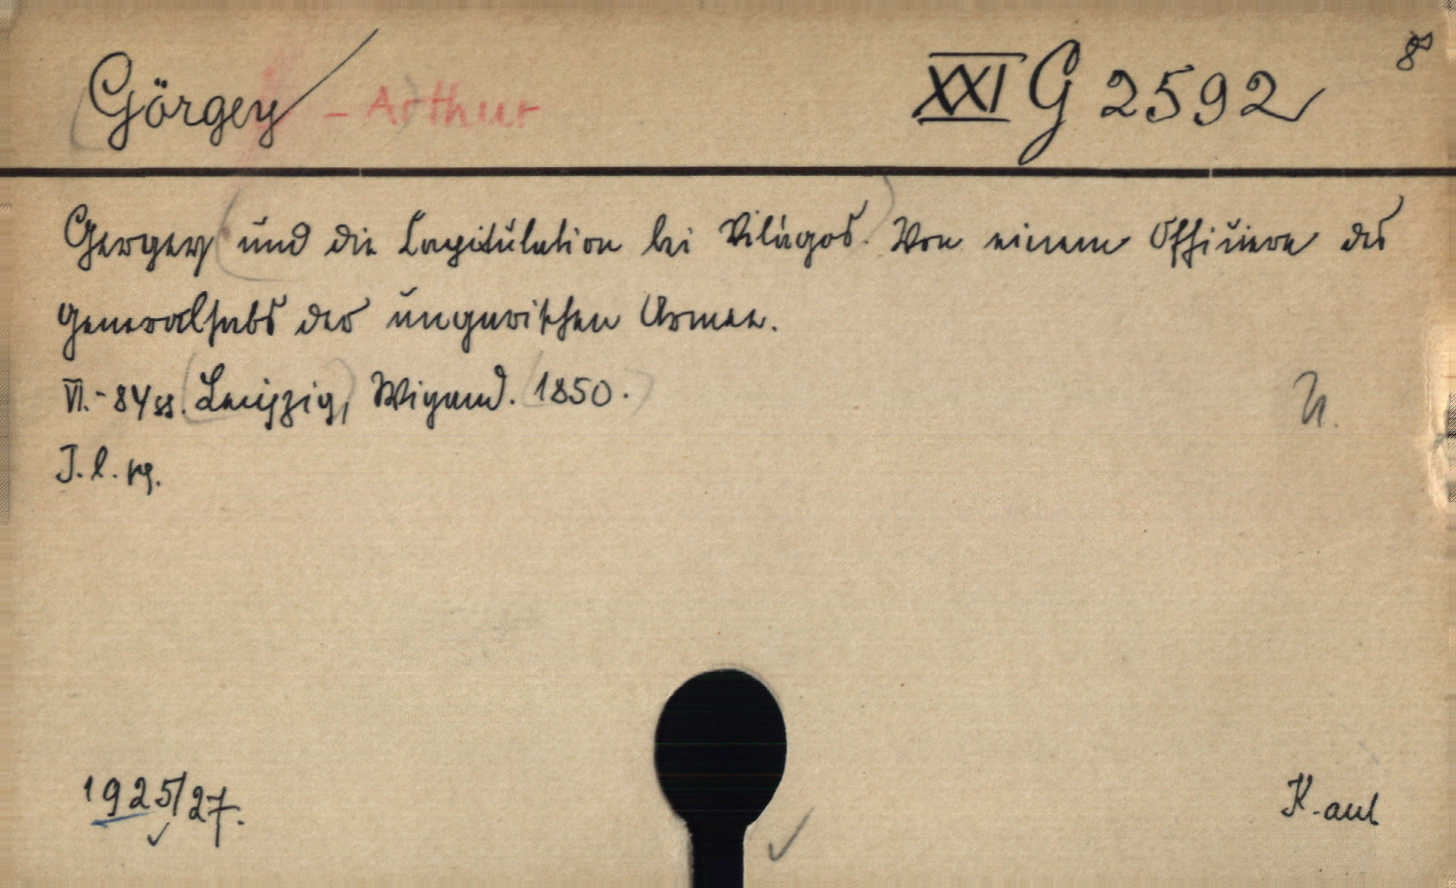 Görgey - Arthur XXI G 2592 8°
Gergey (und die Capitulation bei Vilagos). Von einem Offiziere des
Generalstabs der ungarischen Armee.
VI.- 84 ss. (Leipzig), Wigand. (1850.)
J. l. kg.
1925/27.